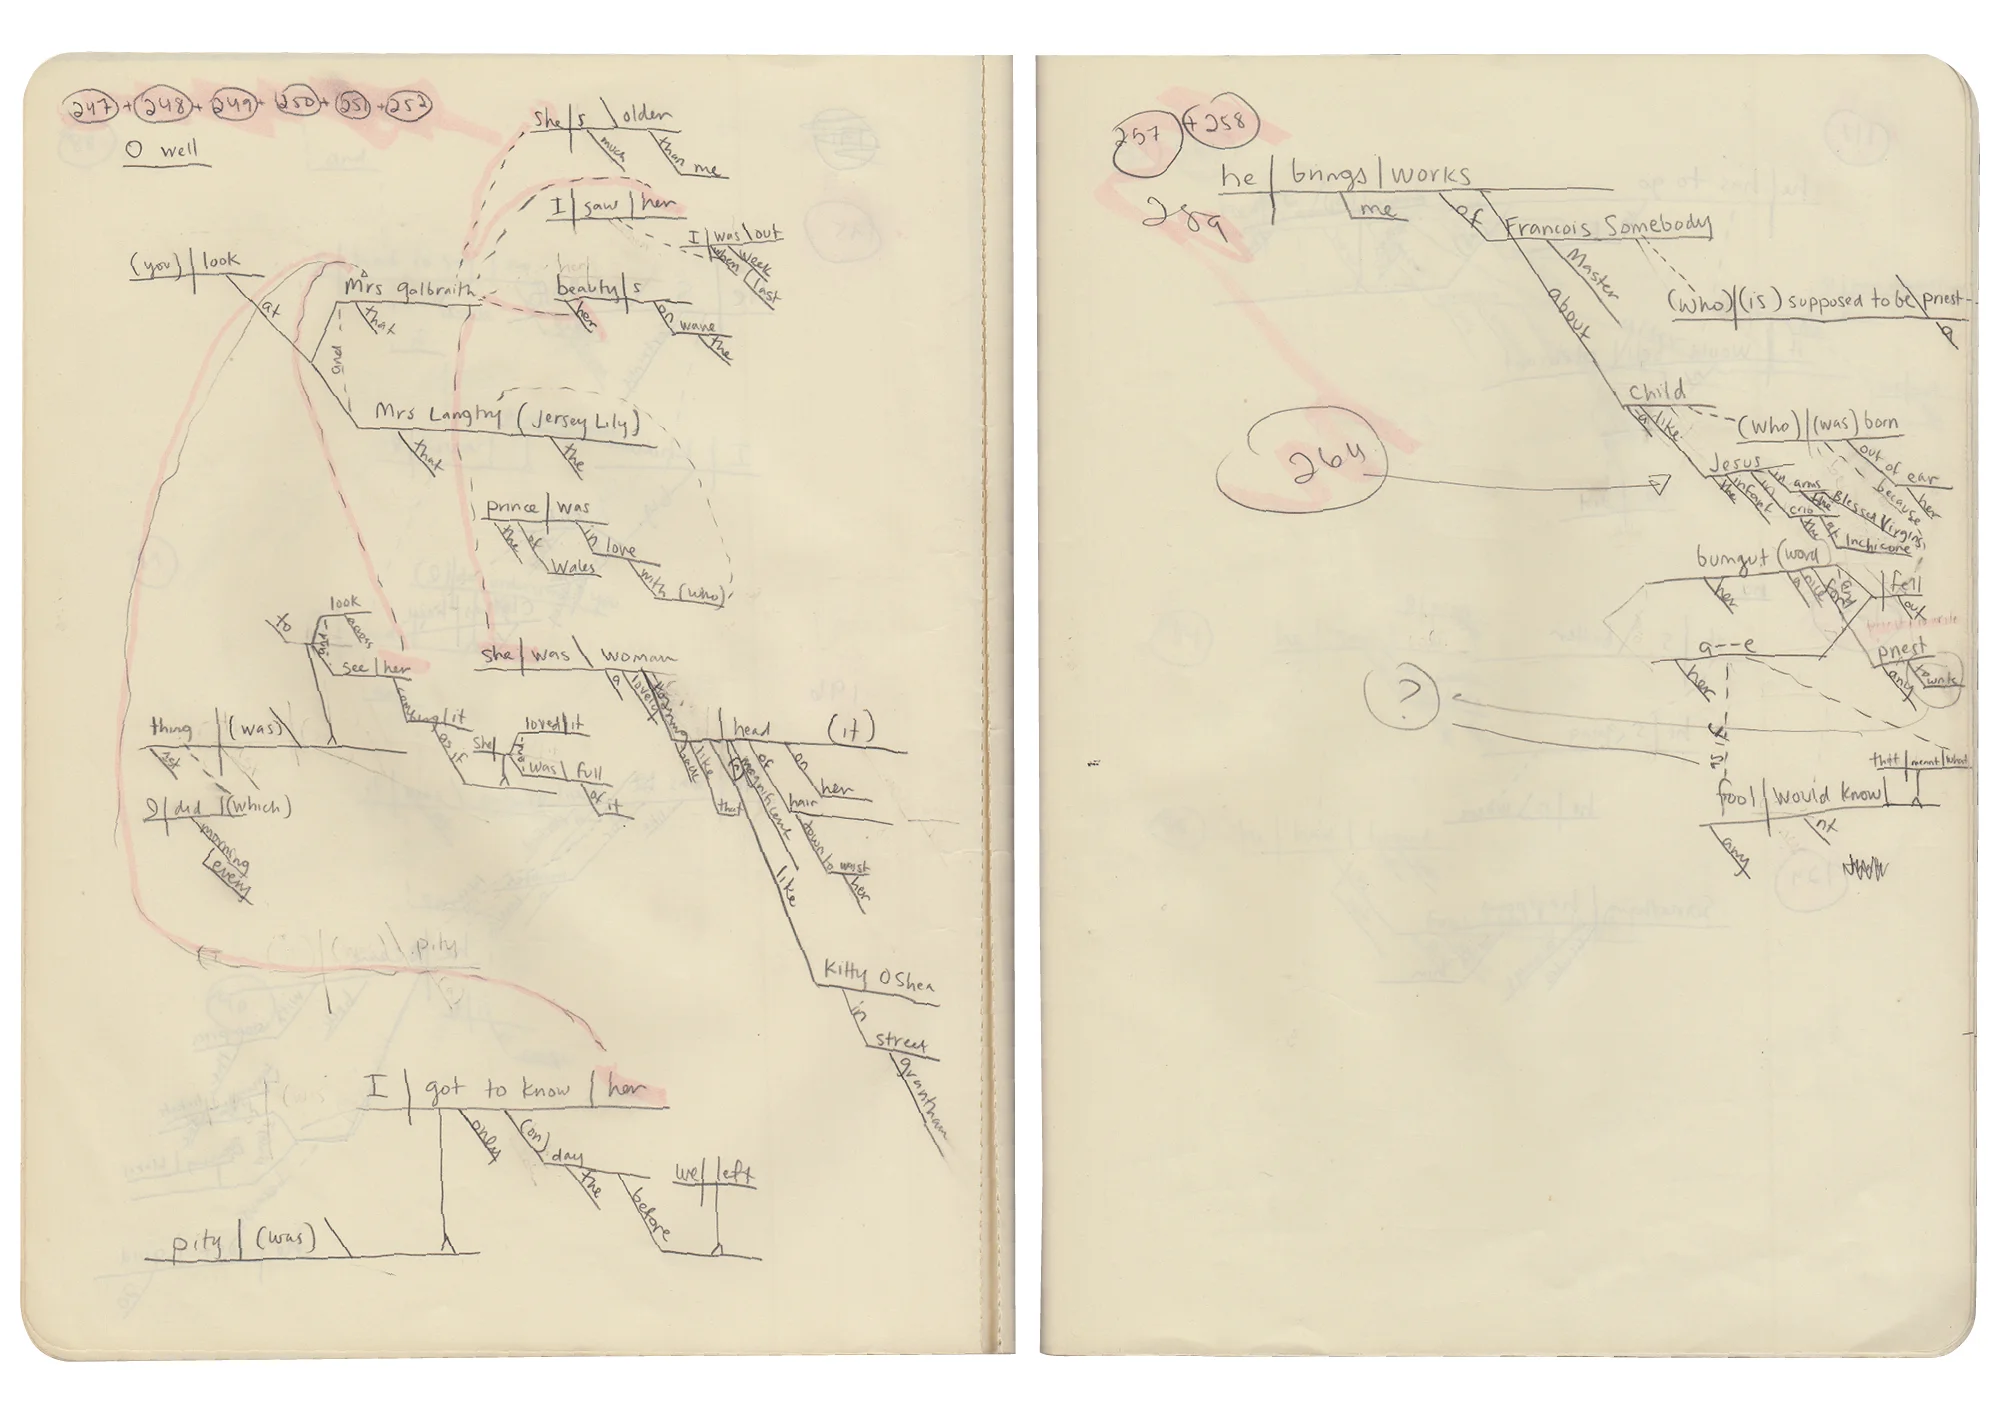 247 + 248 + 249 + 250 + 251 + 252
O well
she | s \ older
much
than
me
I | saw | her
I | was \ out
when
week
last
(you) | look
at
Mrs galbraith
that
her
beauty | s
her
on
wane
the
and
Mrs Langtry (Jersey Lily)
that
the
prince | was
the
of
Wales
in
love
with
(who)
to
look
across
and
see | her
combing | it
as if
she
loved | it
and
was \ full
of
it
thing | (was) \
1st
I | did | (which)
morning
every
she | was \ woman
a
lovely
now
like
that
| head (it)
a
magnificent
of
hair
down to
waist
her
on
her
like
Kitty OShea
in
street
grantham
pity
I | got to know | her
only
(on)
day
the
before
we | left
pity | (was) \
257 + 258
259
he | brings | works
me
of
Francois Somebody
Master
(who) | (is) supposed to be \ priest
a
about
child
a
like
(who) | (was) born
out of
ear
her
because
Jesus
the
infant
in
crib
the
at
Inchicore
in
arms
the
Blessed Virgins
264
bumgut (word)
her
a
nice
for
and
| fell
out
priest
any
to write
a--e
her
?
as if
that | meant | what
fool | would know |
any
nt